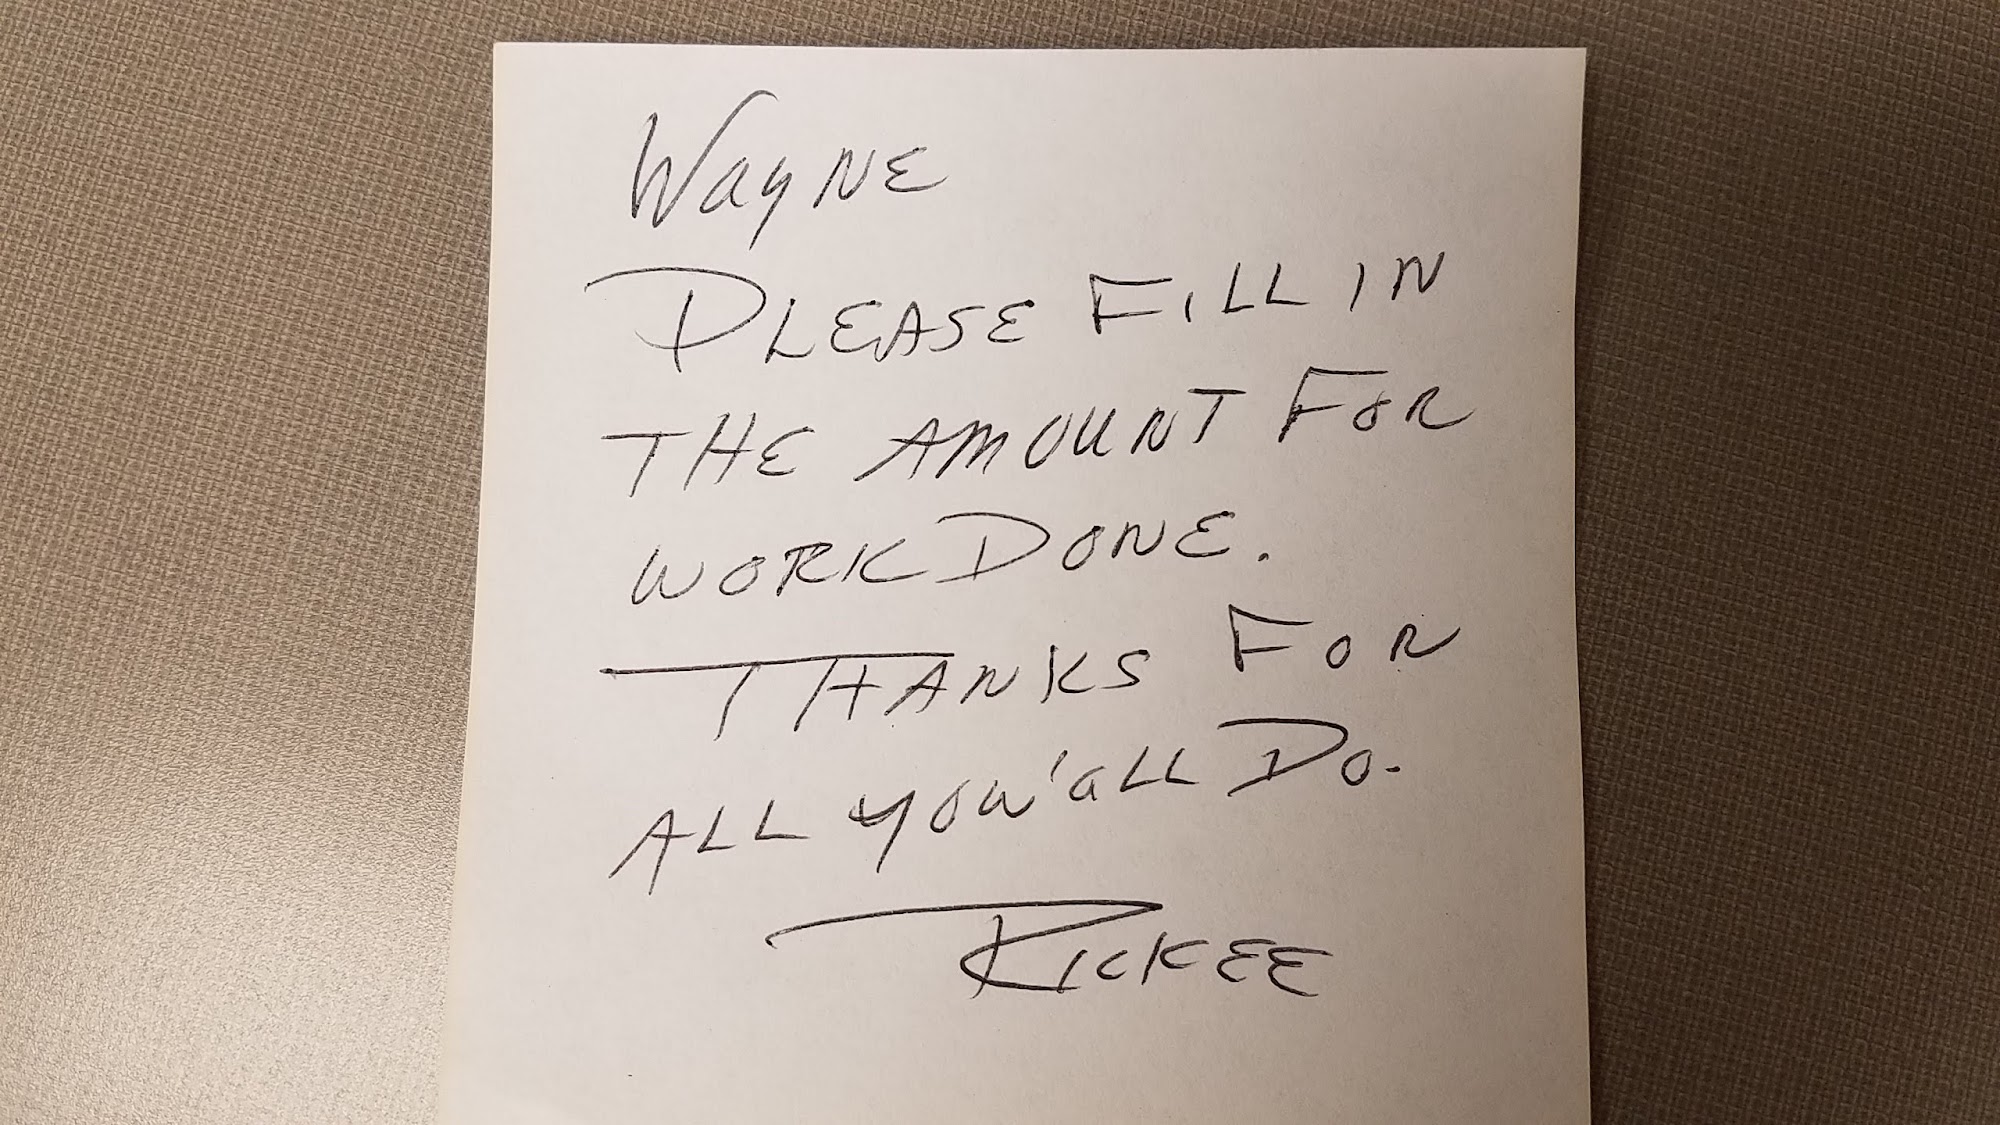 Wayne
PLEASE FILL IN
THE AMOUNT FOR
WORK DONE.
THANKS FOR
ALL YOU'ALL DO.
RICKEE